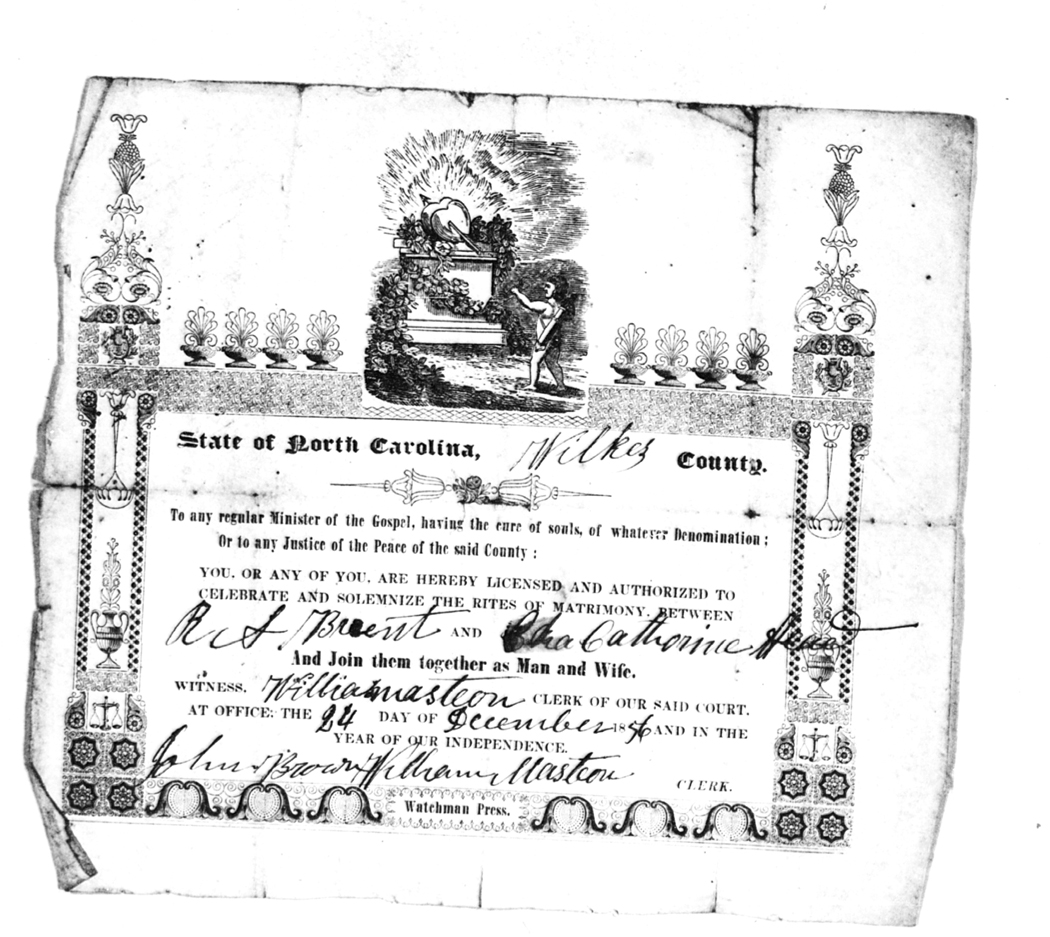 State of North Carolina, Wilkes County.
To any regular Minister of the Gospel, having the cure of souls, of whatever Denomination;
Or to any Justice of the Peace of the said County:
YOU, OR ANY OF YOU, ARE HEREBY LICENSED AND AUTHORIZED TO
CELEBRATE AND SOLEMNIZE THE RITES OF MATRIMONY, BETWEEN
R S AND Catharine
And Join them together as Man and Wife.
WITNESS, William Mastson CLERK OF OUR SAID COURT,
AT OFFICE: THE 24 DAY OF December 1856 AND IN THE
YEAR OF OUR INDEPENDENCE.
John Brown William Mastson CLERK.
Watchman Press.